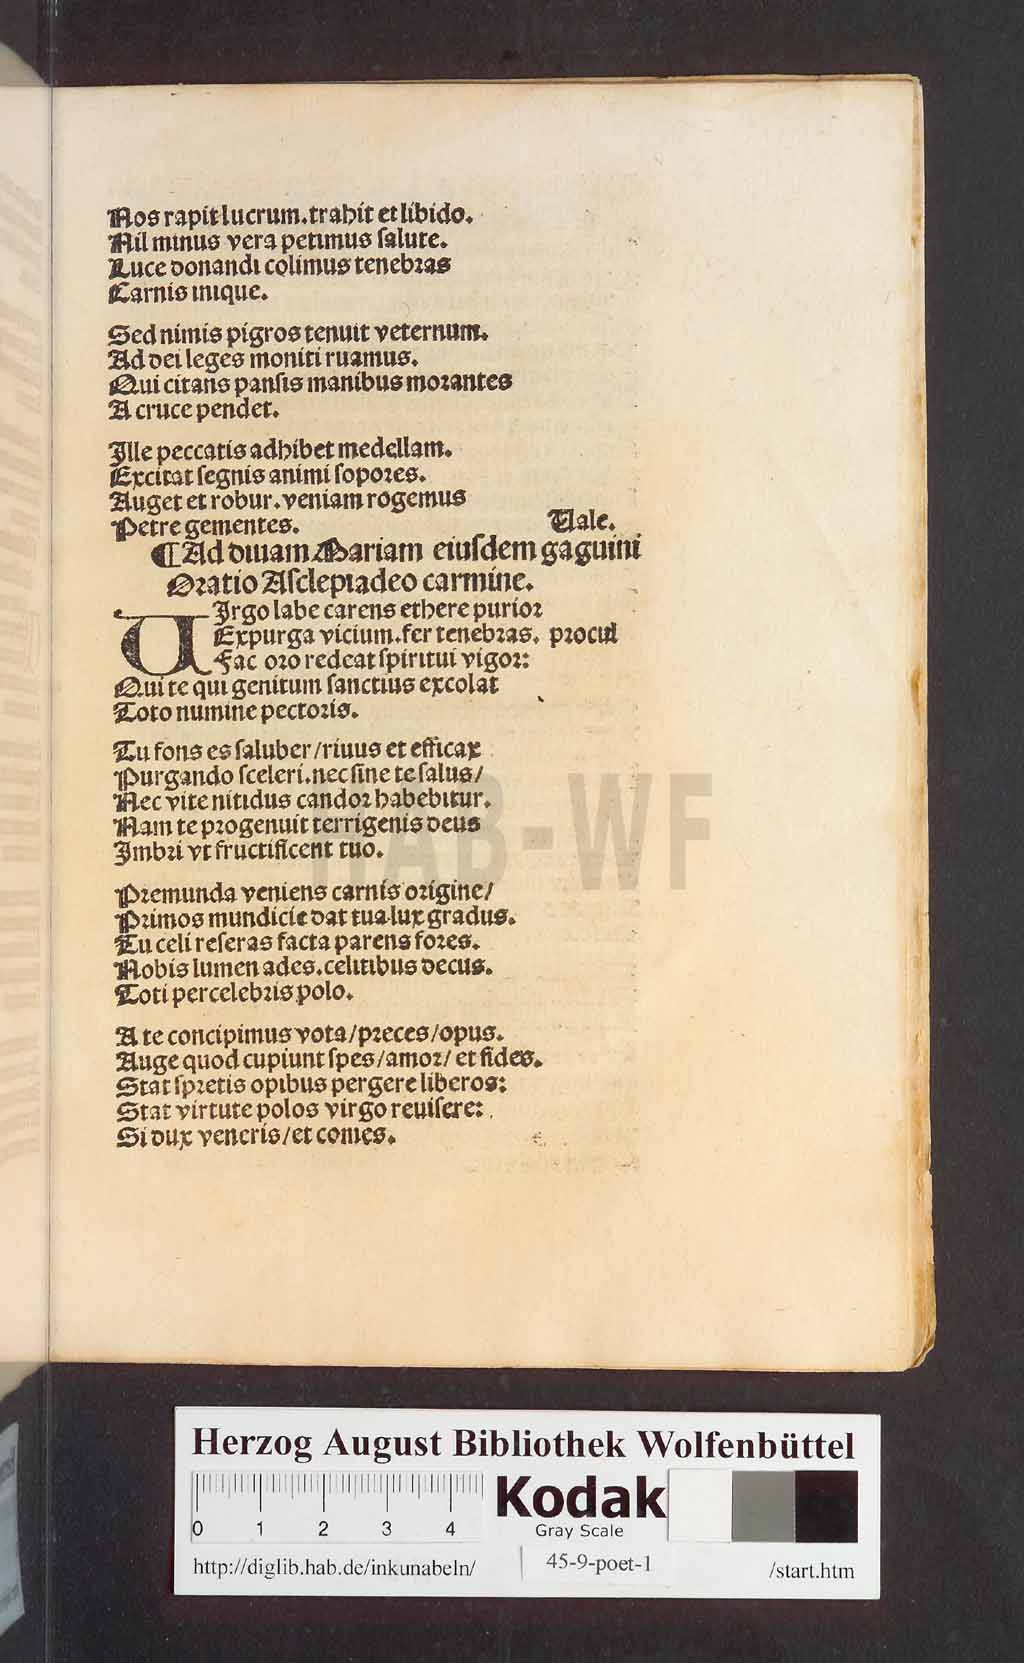 Nos rapit lucrum.trahit et libido.
Nil minus vera petimus salute.
Luce donandi colimus tenebras
Carnis inique.
Sed nimis pigros tenuit veternum.
Ad dei leges moniti ruamus.
Qui citans pansis manibus morantes
A cruce pendet.
Ille peccatis adhibet medellam.
Excitat segnis animi sopores.
Auget et robur.veniam rogemus
Petre gementes. Uale.
¶Ad diuam Mariam eiusdem gaguini
Oratio Asclepiadeo carmine.
UIrgo labe carens ethere purior
Expurga vicium.fer tenebras. procul
Fac oro redeat spiritui vigor:
Qui te qui genitum sanctius excolat
Toto numine pectoris.
Tu fons es saluber/riuus et efficax
Purgando sceleri.nec sine te salus/
Nec vite nitidus candor habebitur.
Nam te progenuit terrigenis deus
Imbri vt fructificent tuo.
Premunda veniens carnis origine/
Primos mundicie dat tua lux gradus.
Tu celi reseras facta parens fores.
Nobis lumen ades.celitibus decus.
Toti percelebris polo.
A te concipimus vota/preces/opus.
Auge quod cupiunt spes/amor/ et fides.
Stat spretis opibus pergere liberos:
Stat virtute polos virgo reuisere:
Si dux veneris/et comes.
HAB-WF
Herzog August Bibliothek Wolfenbüttel
0 1 2 3 4
Kodak
Gray Scale
http://diglib.hab.de/inkunabeln/ 45-9-poet-1 /start.htm